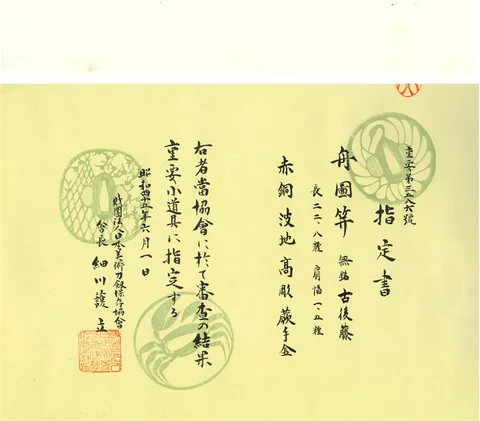 重要第三五八六號
指定書
舟圖笄 無銘 古後藤
長二二・八糎 肩幅一・五糎
赤銅波地高彫蕨手金
右者當協會に於て審査の結果
重要小道具に指定する
昭和四十五年六月一日
財團法人日本美術刀劍保存協會
會長 細川護立